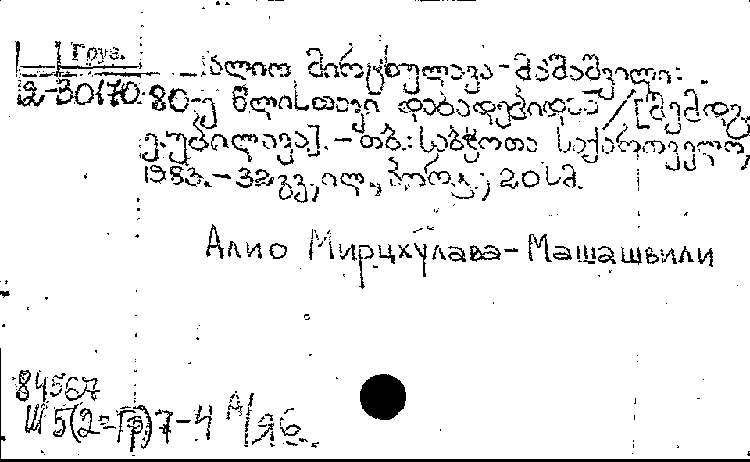 Груз.
ალიო მირცხულავა-მაშაშვილი:
2-30170 80-ე წლისთავი დაბადებიდან / [შემდგ.
ე. უბილავა]. – თბ.: საბჭოთა საქართველო,
1983. – 32 გვ., ილ., პორტ.; 20 სმ.
Алио Мирцхулава-Машашвили
84567
Ш5(2=Гр)7-4 А/Яб.